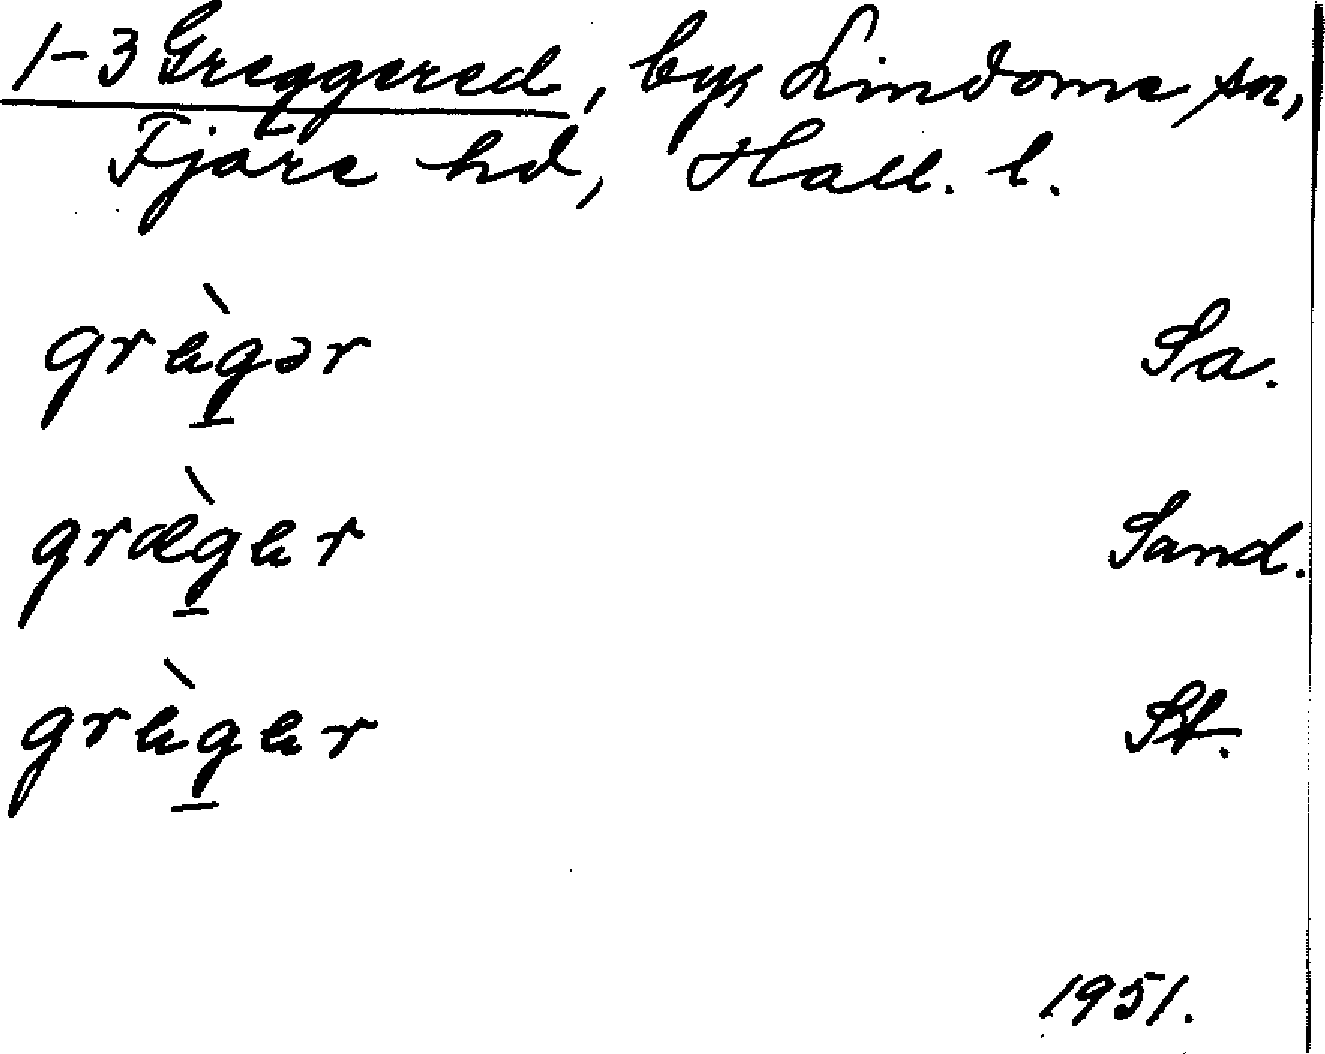 1-3 Greggered, by, Lindome sn,
Fjäre hd, Hall. l.
grὲg̱ər Sa.
græ̀g̱ɛr Sand.
grὲg̱ɛr St.
1951.